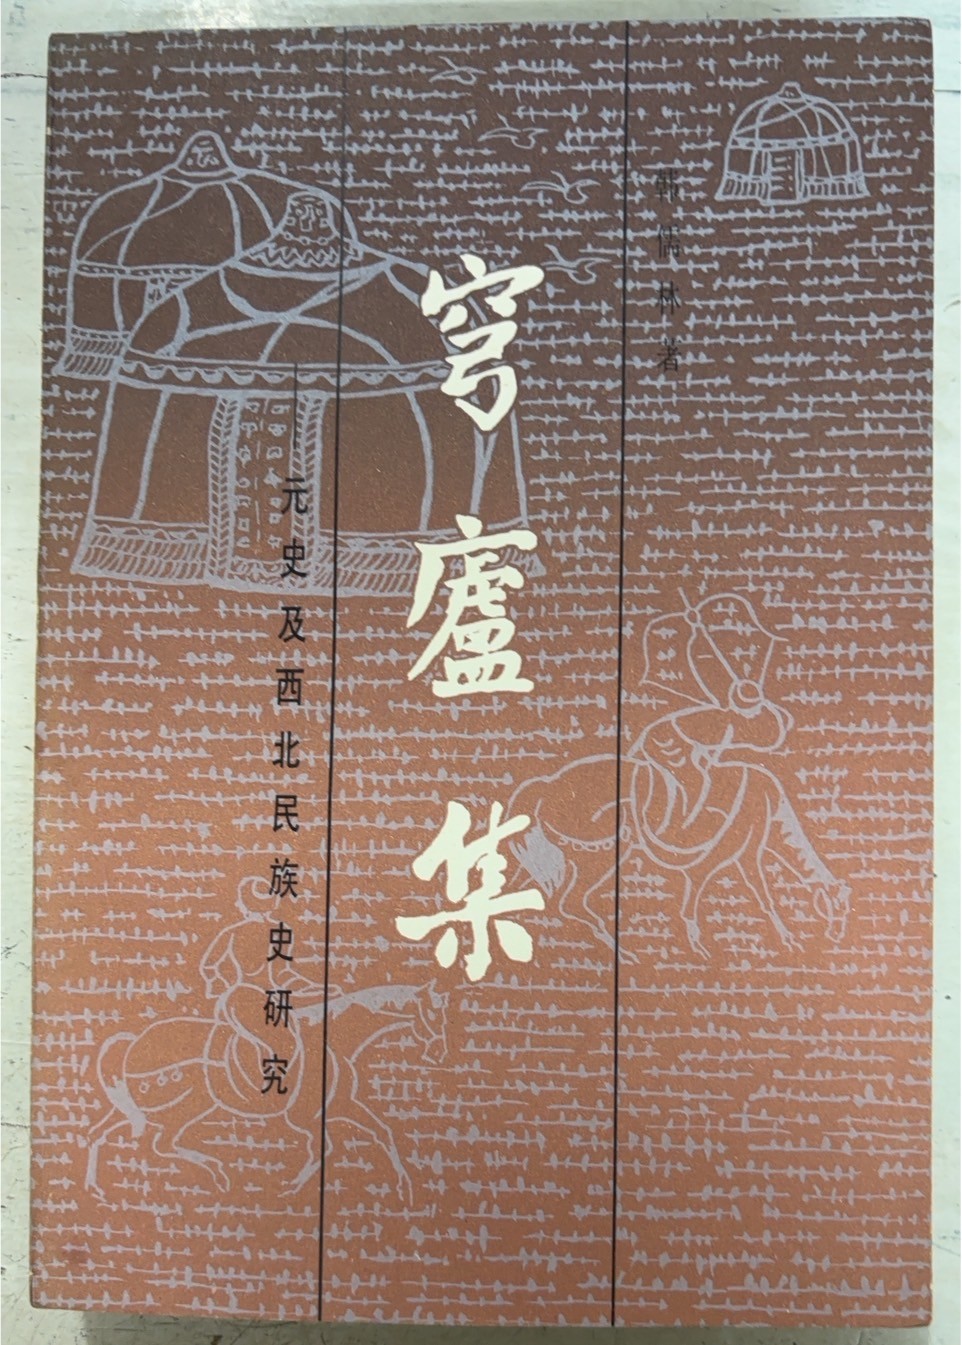 韩儒林著
穹廬集
——元史及西北民族史研究